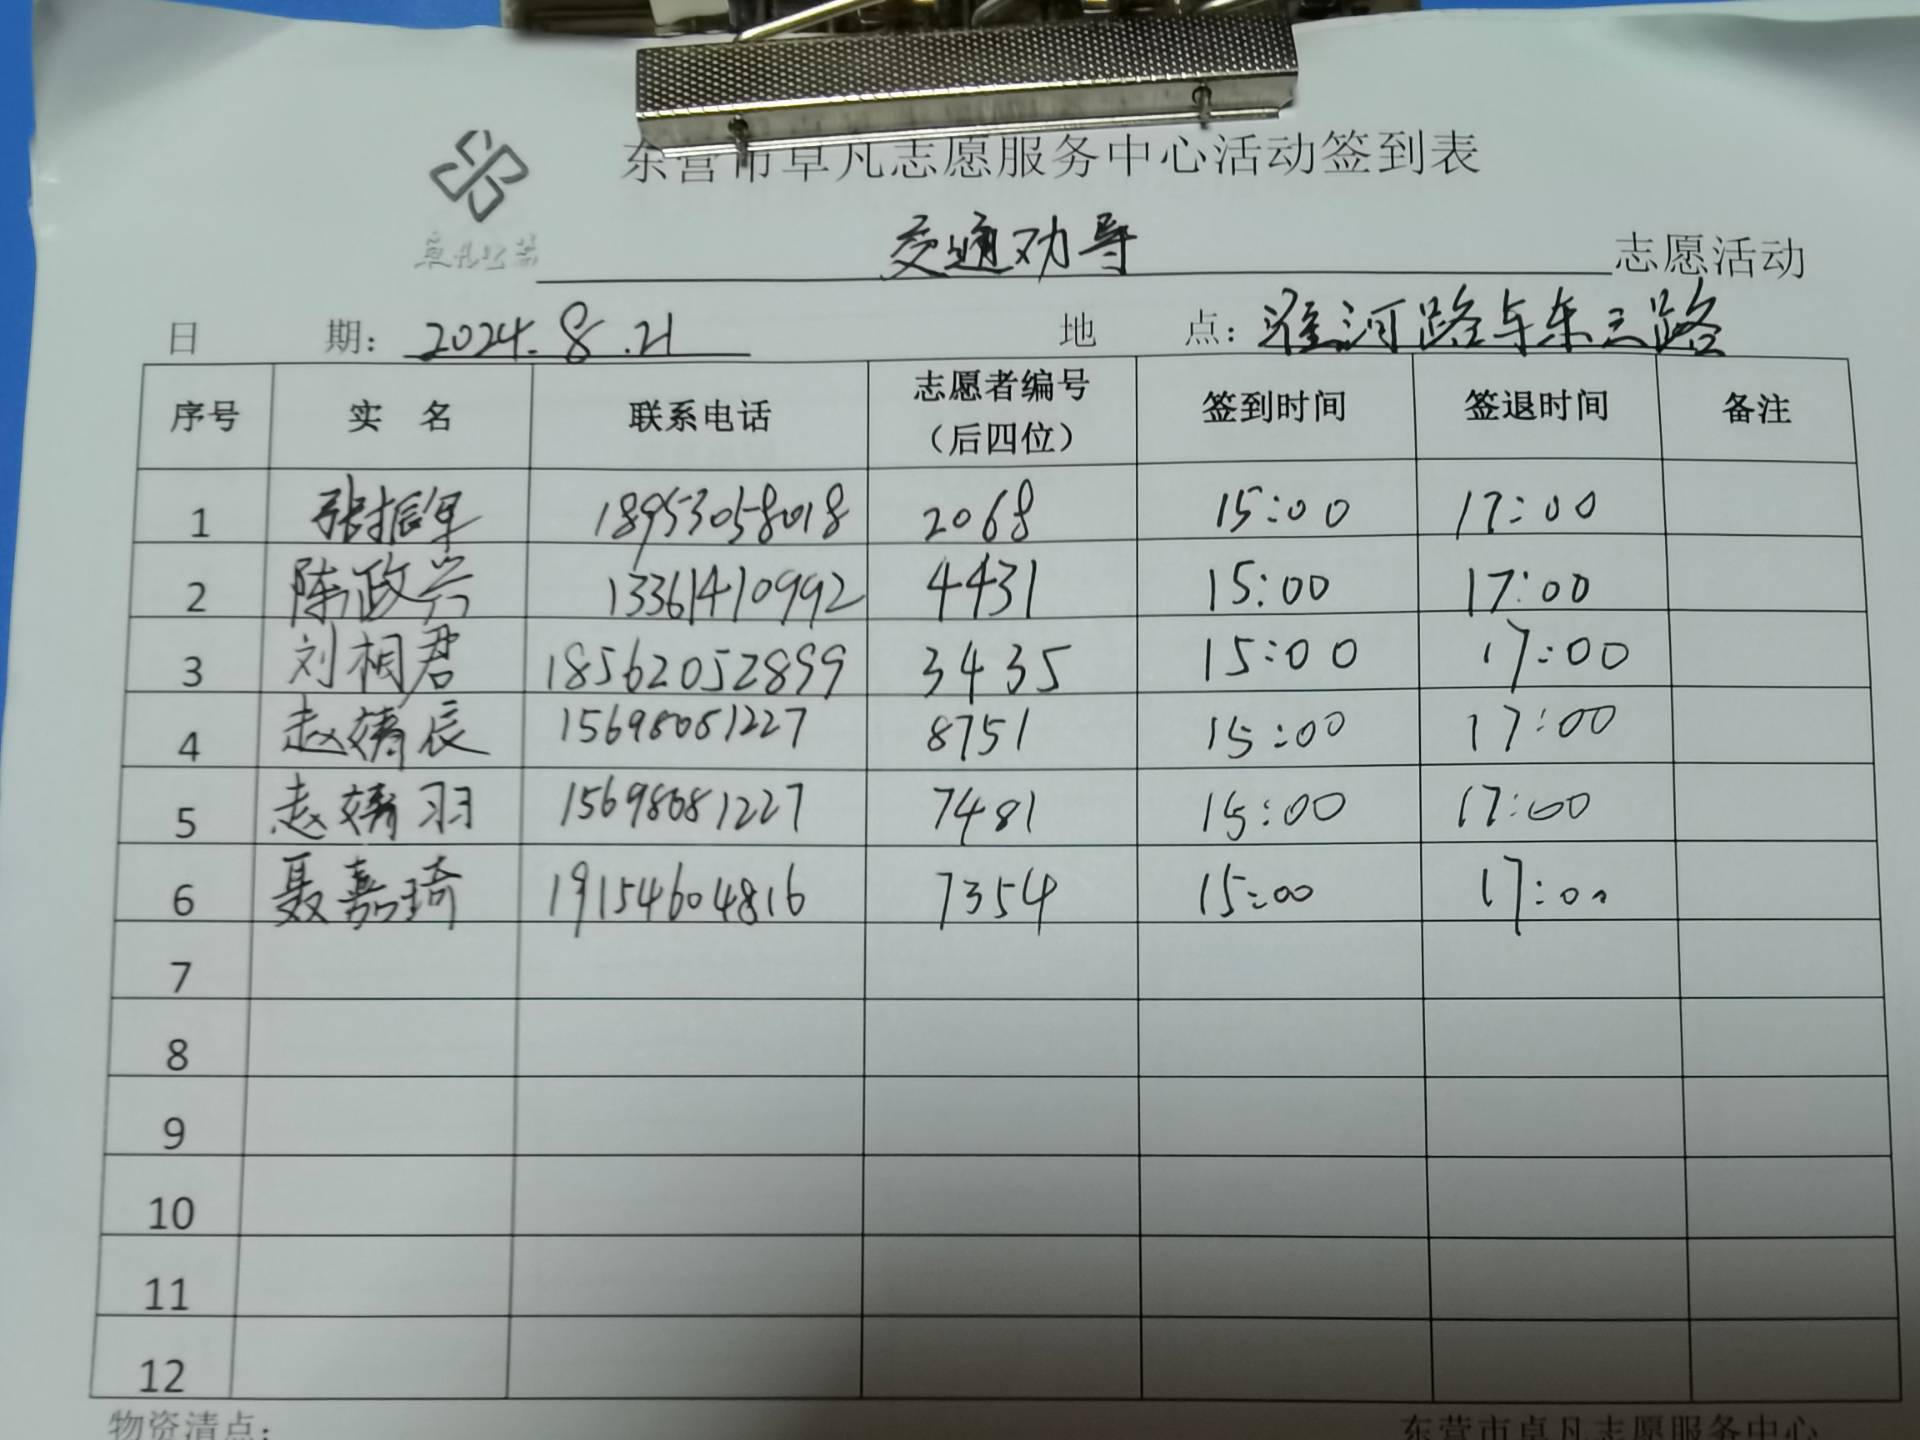 东营市卓凡志愿服务中心活动签到表
卓凡公益
交通劝导 志愿活动
日 期： 2024.8.21 地 点： 淮河路与东三路
序号 实 名 联系电话 志愿者编号（后四位） 签到时间 签退时间 备注
1 张振军 18953058018 2068 15:00 17:00
2 陈政兴 13361410992 4431 15:00 17:00
3 刘相君 18562052899 3435 15:00 17:00
4 赵婧辰 15698081227 8751 15:00 17:00
5 赵婧羽 15698081227 7481 15:00 17:00
6 聂嘉琦 19154604816 7354 15:00 17:00
7
8
9
10
11
12
物资清点： 东营市卓凡志愿服务中心